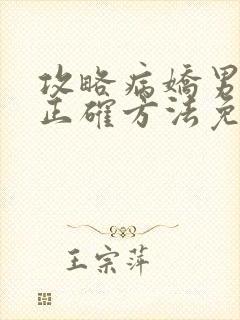 攻略病嬌男
正確方法免
王宗萍